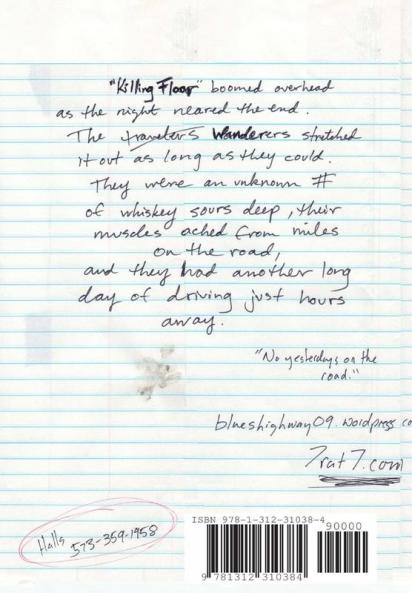 "Killing Floor" boomed overhead
as the night neared the end.
The travelers Wanderers stretched
it out as long as they could.
They were an unknown #
of whiskey sours deep, their
muscles ached from miles
on the road,
and they had another long
day of driving just hours
away.
"No yesterdays on the
road."
blueshighway09.wordpress.co
7rat7.com
Halls
573-359-1958
ISBN 978-1-312-31038-4
90000
9 781312 310384